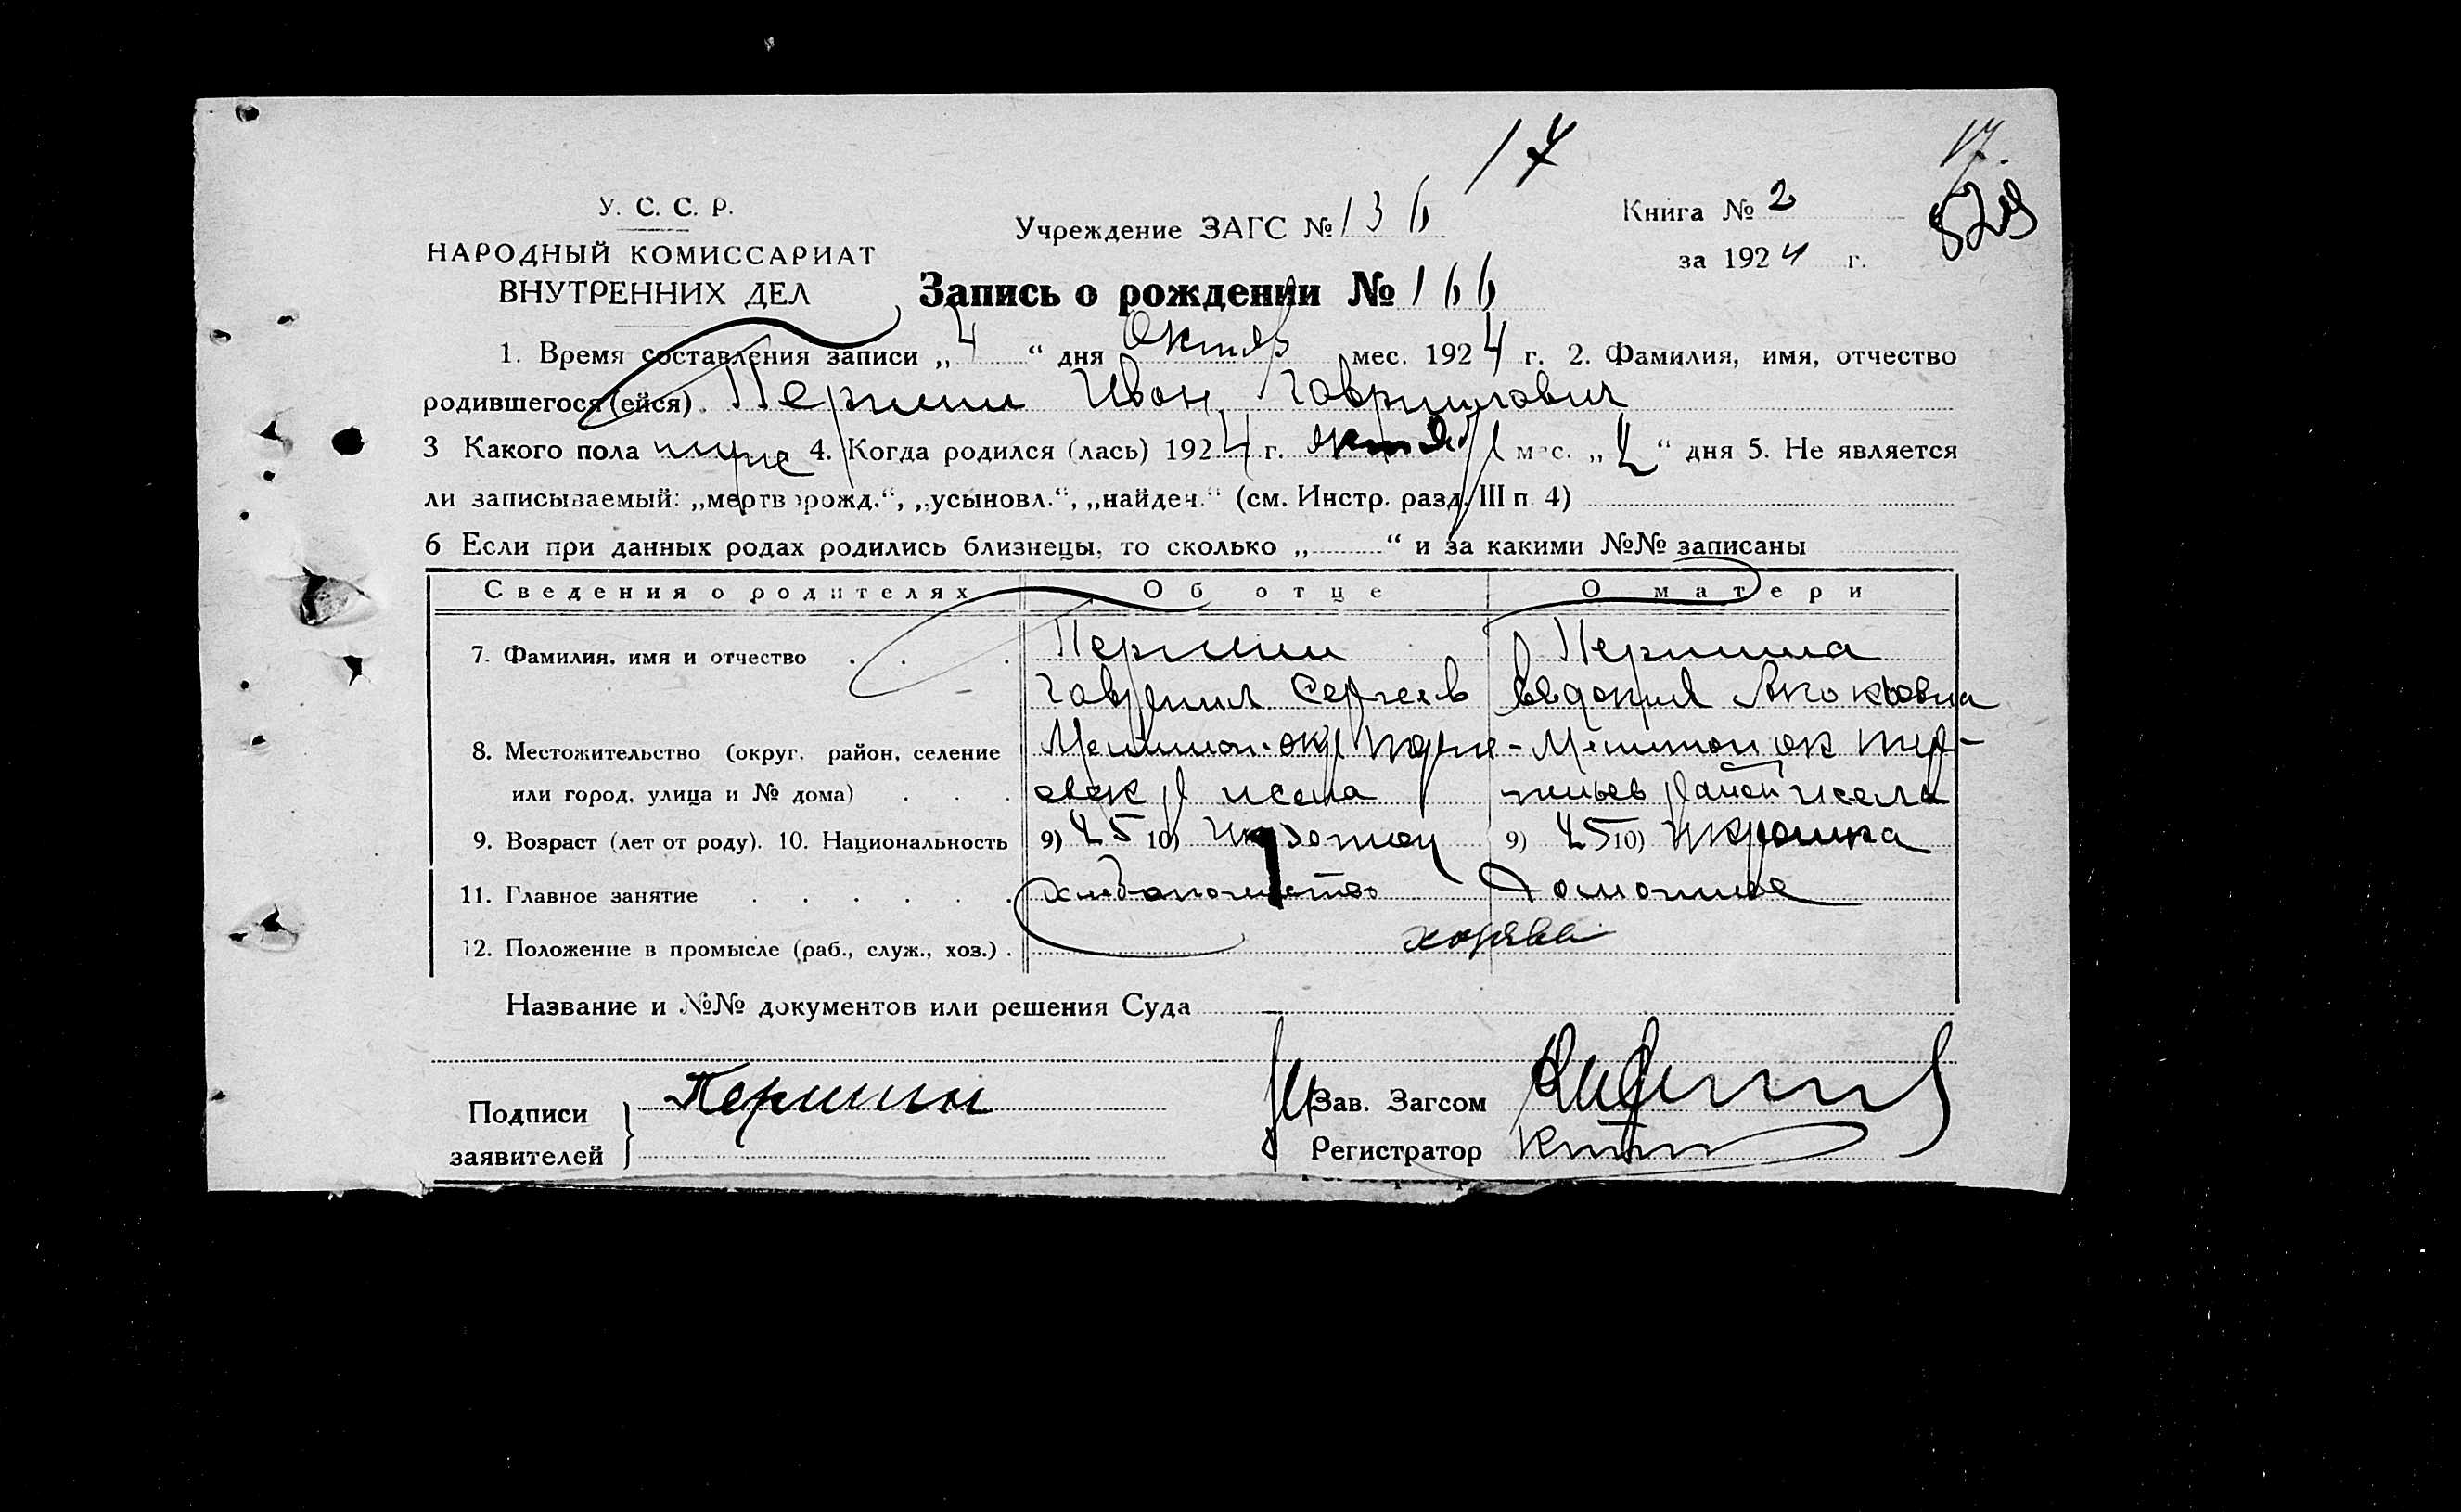 17
17.
829
У. С. С. Р.
НАРОДНЫЙ КОМИССАРИАТ
ВНУТРЕННИХ ДЕЛ
Учреждение ЗАГС № 136
Книга № 2
за 1924 г.
Запись о рождении № 166
1. Время составления записи „4“ дня Октяб мес. 1924 г. 2. Фамилия, имя, отчество
родившегося (ейся). Першин Иван Гаврилович
3 Какого пола муж 4. Когда родился (лась) 1924 г. октября мес. „2“ дня 5. Не является
ли записываемый: „мертворожд.“, „усыновл.“, „найден.“ (см. Инстр. разд. III п. 4)
6 Если при данных родах родились близнецы, то сколько „ “ и за какими №№ записаны
Сведения о родителях Об отце О матери
7. Фамилия, имя и отчество Першин Першина
Гаврил Сергеев Евдокия
8. Местожительство (округ, район, селение
или город, улица и № дома)
9. Возраст (лет от роду). 10. Национальность 9) 25 10) 9) 25 10) украинка
11. Главное занятие хлебопашество Домашнее
12. Положение в промысле (раб., служ., хоз.) хозяева
Название и №№ документов или решения Суда
Подписи заявителей Першин
Зав. Загсом
Регистратор